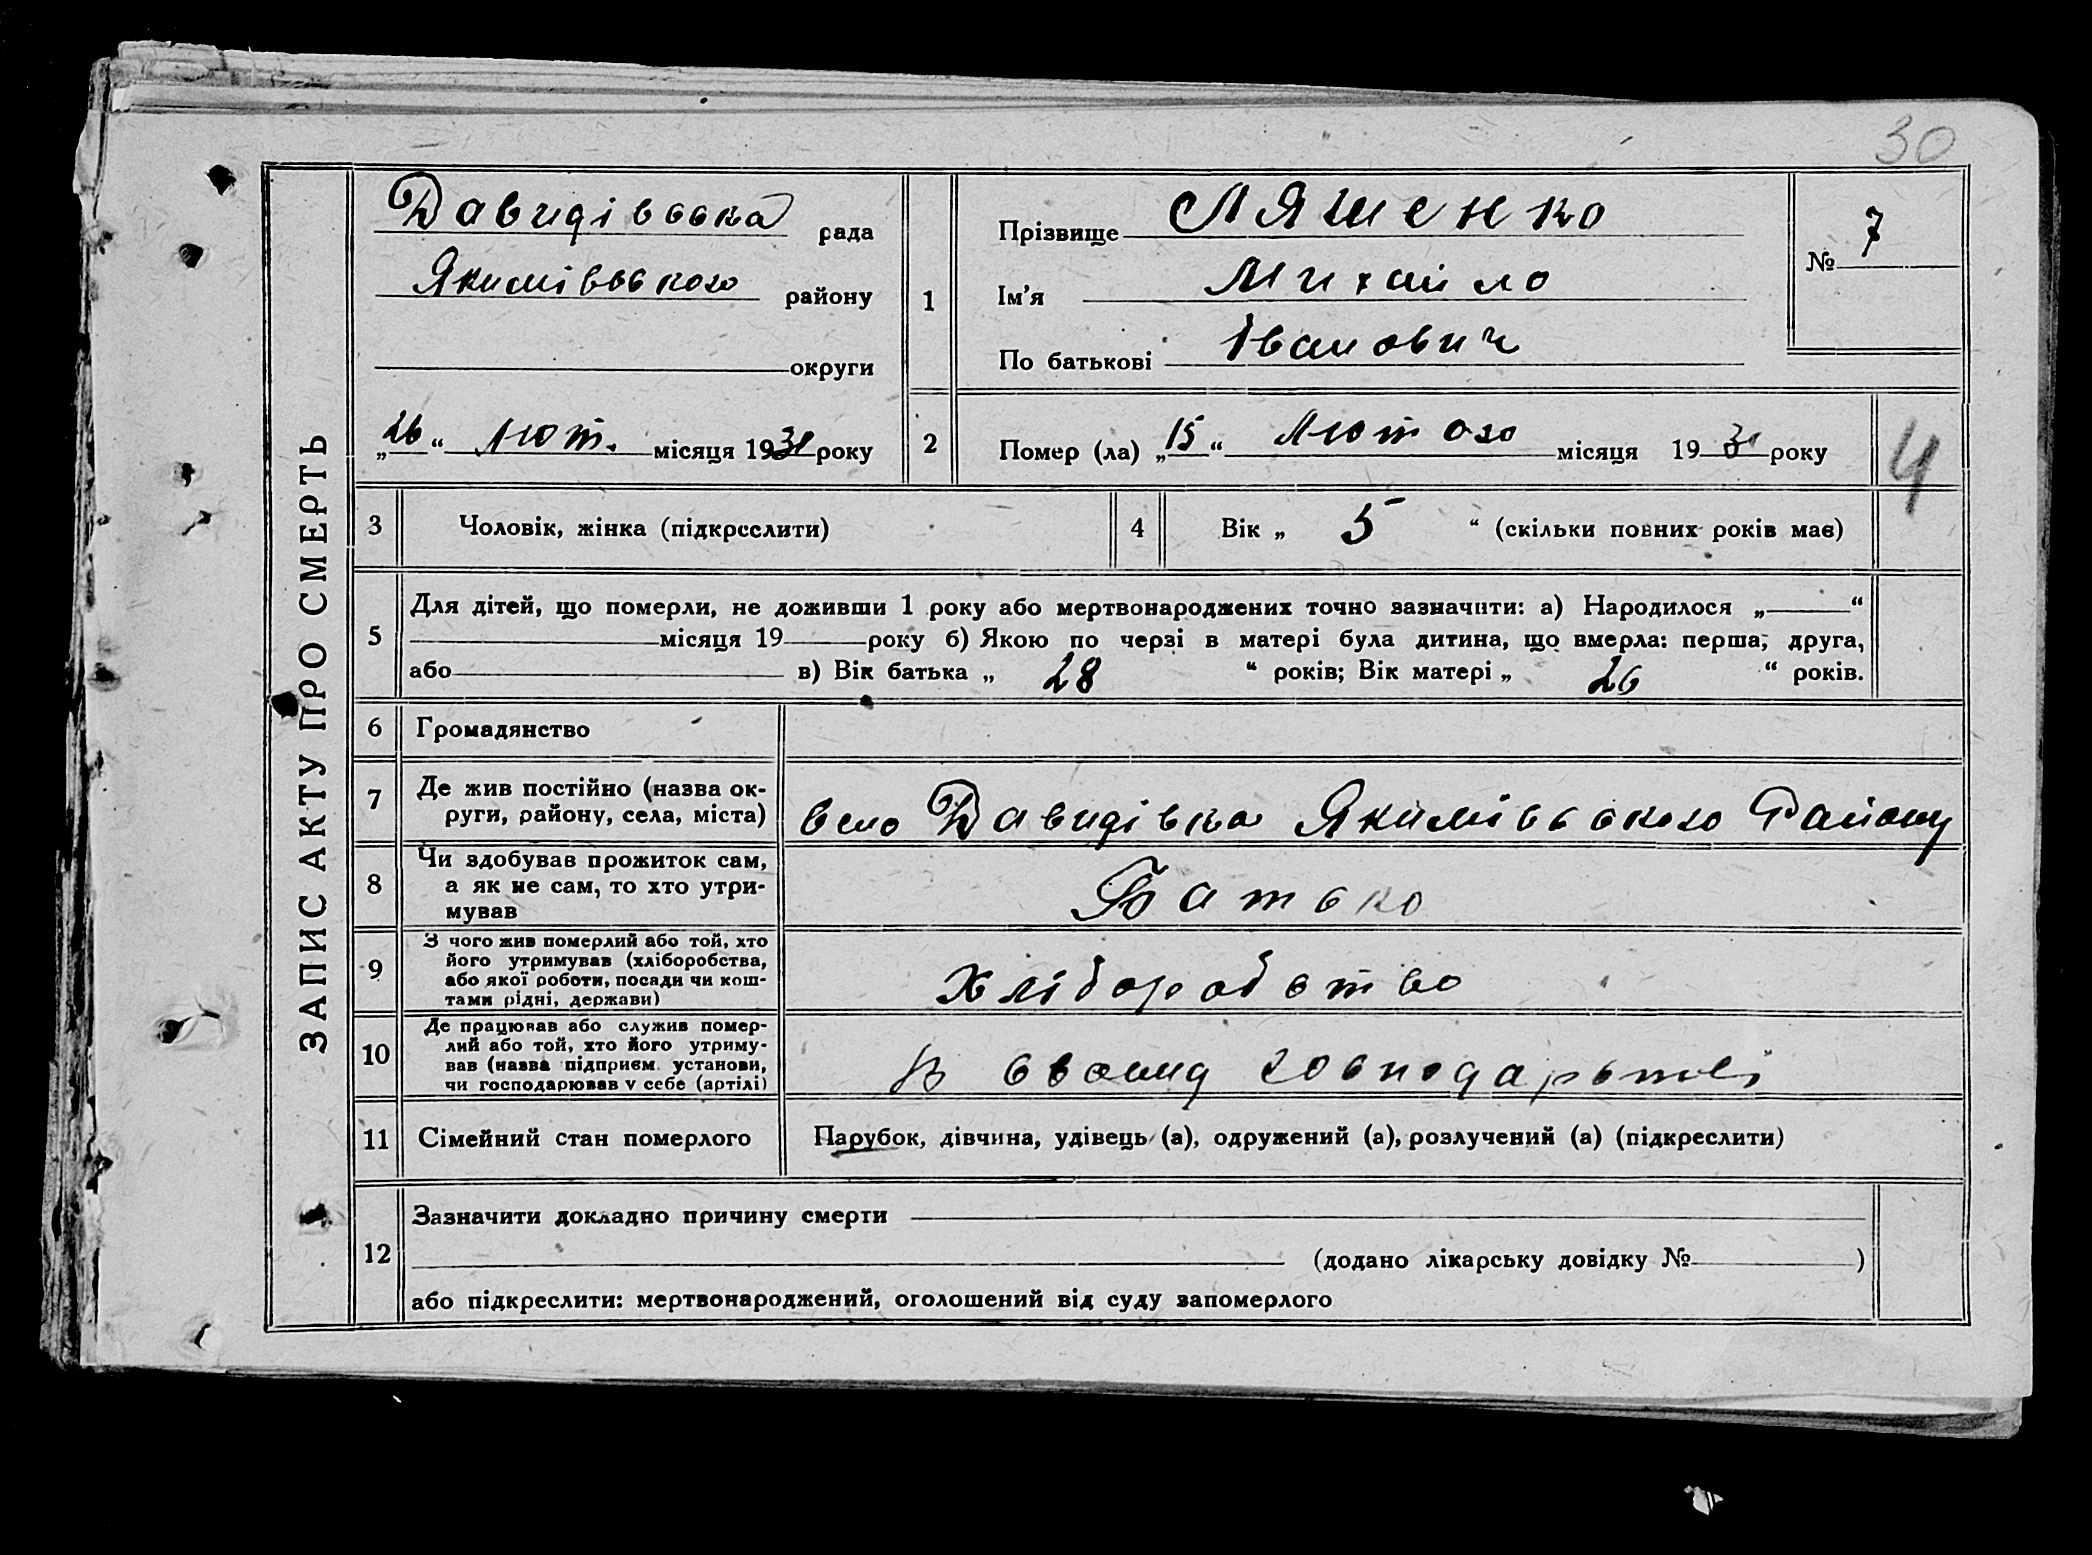 30
ЗАПИС АКТУ ПРО СМЕРТЬ
Давидівська рада
Якимівського району
округи
„26“ лют. місяця 1931 року
1
Прізвище Ляшенко
Ім'я Михайло
По батькові Іванович
№ 7
2
Помер (ла) „15“ Лютого місяця 1931 року
4
3
Чоловік, жінка (підкреслити)
4
Вік „ 5 “ (скільки повних років має)
5
Для дітей, що померли, не доживши 1 року або мертвонароджених точно зазначити: а) Народилося „ “
місяця 19 року б) Якою по черзі в матері була дитина, що вмерла: перша, друга,
або в) Вік батька „ 28 “ років; Вік матері „ 26 “ років.
6
Громадянство
7
Де жив постійно (назва ок-
руги, району, села, міста)
село Давидівка Якимівського Району
8
Чи здобував прожиток сам,
а як не сам, то хто утри-
мував
Батько
9
З чого жив померлий або той, хто
його утримував (хліборобства,
або якої роботи, посади чи кош-
тами рідні, держави)
Хліборобство
10
Де працював або служив помер-
лий або той, хто його утриму-
вав (назва підприєм. установи,
чи господарював у себе (артілі)
В своєму господарьстві
11
Сімейний стан померлого
Парубок, дівчина, удівець (а), одружений (а), розлучений (а) (підкреслити)
12
Зазначити докладно причину смерти
(додано лікарську довідку № )
або підкреслити: мертвонароджений, оголошений від суду запомерлого